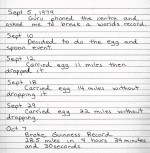 Sept 5, 1979
Guru phoned the centre and
asked me to break a worlds record.
Sept 10
Decided to do the egg and
spoon event.
Sept 12
Carried egg 11 miles then
dropped it.
Sept 18
Carried egg 14 miles without
dropping.
Sept 29
Carried egg 22 miles without
dropping.
Oct 7
Broke Guinness Record
28.5 miles in 4 hours 34 minutes
and 30 seconds.